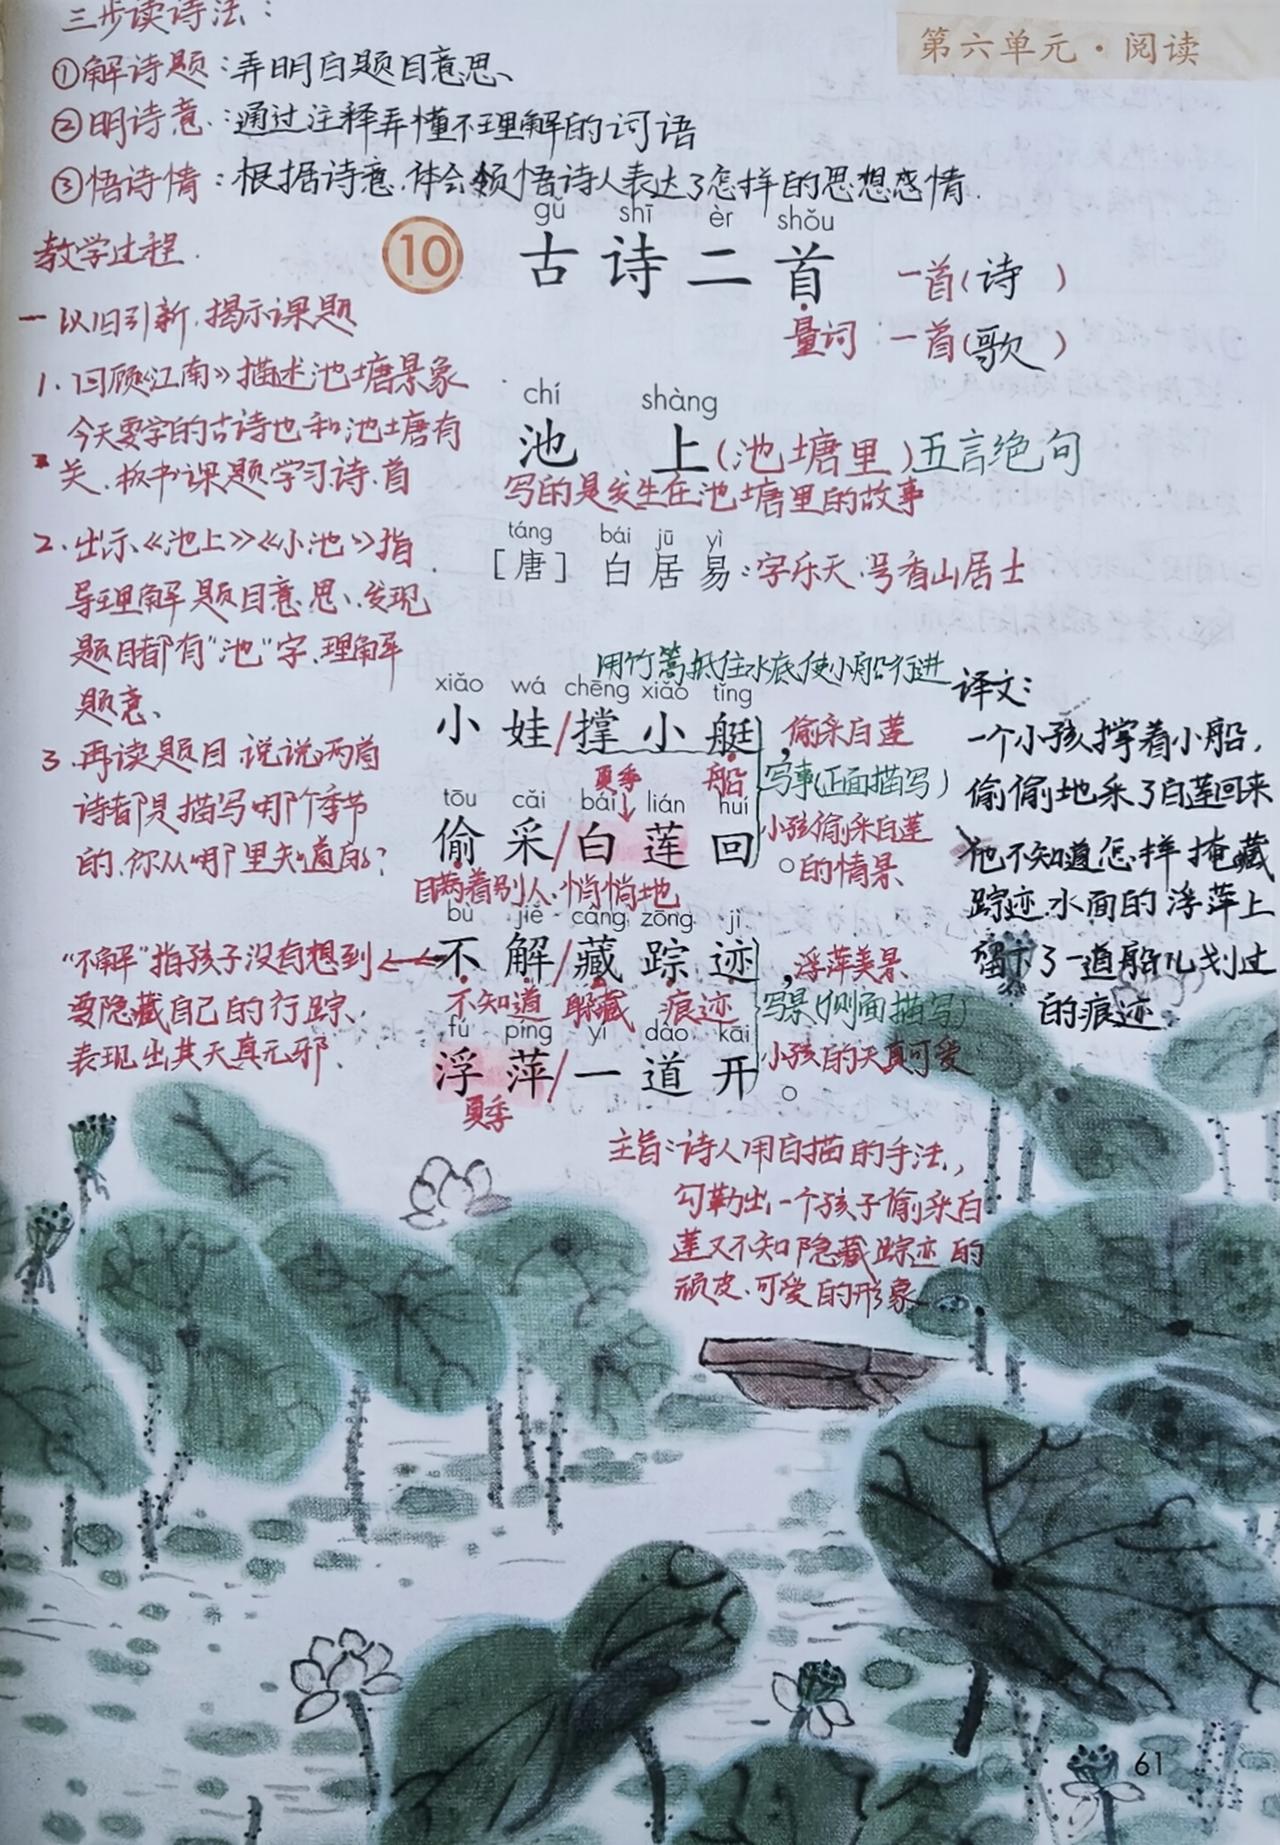 三步读诗法：
第六单元·阅读
①解诗题：弄明白题目意思、
②明诗意：通过注释弄懂不理解的词语
③悟诗情：根据诗意、体会领悟诗人表达了怎样的思想感情.
教学过程.
gǔ shī èr shǒu
10 古诗二首
一首(诗 )
量词 一首(歌 )
一 以旧引新，揭示课题
1、回顾《江南》描述池塘景象
今天要学的古诗也和池塘有
关、板书课题学习诗、首
chí shàng
池 上(池塘里)五言绝句
写的是发生在池塘里的故事
2、出示《池上》《小池》指
导理解题目意思、发现
题目都有"池"字、理解
题意、
táng bái jū yì
[唐] 白居易：字乐天、号香山居士
3、再读题目、说说两首
诗都是描写哪个季节
的、你从哪里知道的？
用竹篙抵住水底使小船行进
xiǎo wá chēng xiǎo tǐng
小娃/撑小艇，
偷采白莲
夏季 船
写事(正面描写)
tōu cǎi bái lián huí
偷采/白莲回。
小孩偷采白莲
的情景
瞒着别人、悄悄地
bù jiě cáng zōng jì
不解/藏踪迹，
浮萍美景
不知道 躲藏 痕迹
写景(侧面描写)
fú píng yí dào kāi
浮萍/一道开。
小孩的天真可爱
夏季
"不解"指孩子没有想到
要隐藏自己的行踪、
表现出其天真无邪.
译文：
一个小孩撑着小船，
偷偷地采了白莲回来
他不知道怎样掩藏
踪迹、水面的浮萍上
留下了一道船儿划过
的痕迹
主旨：诗人用白描的手法，
勾勒出一个孩子偷采白
莲又不知隐藏踪迹的
顽皮、可爱的形象
61